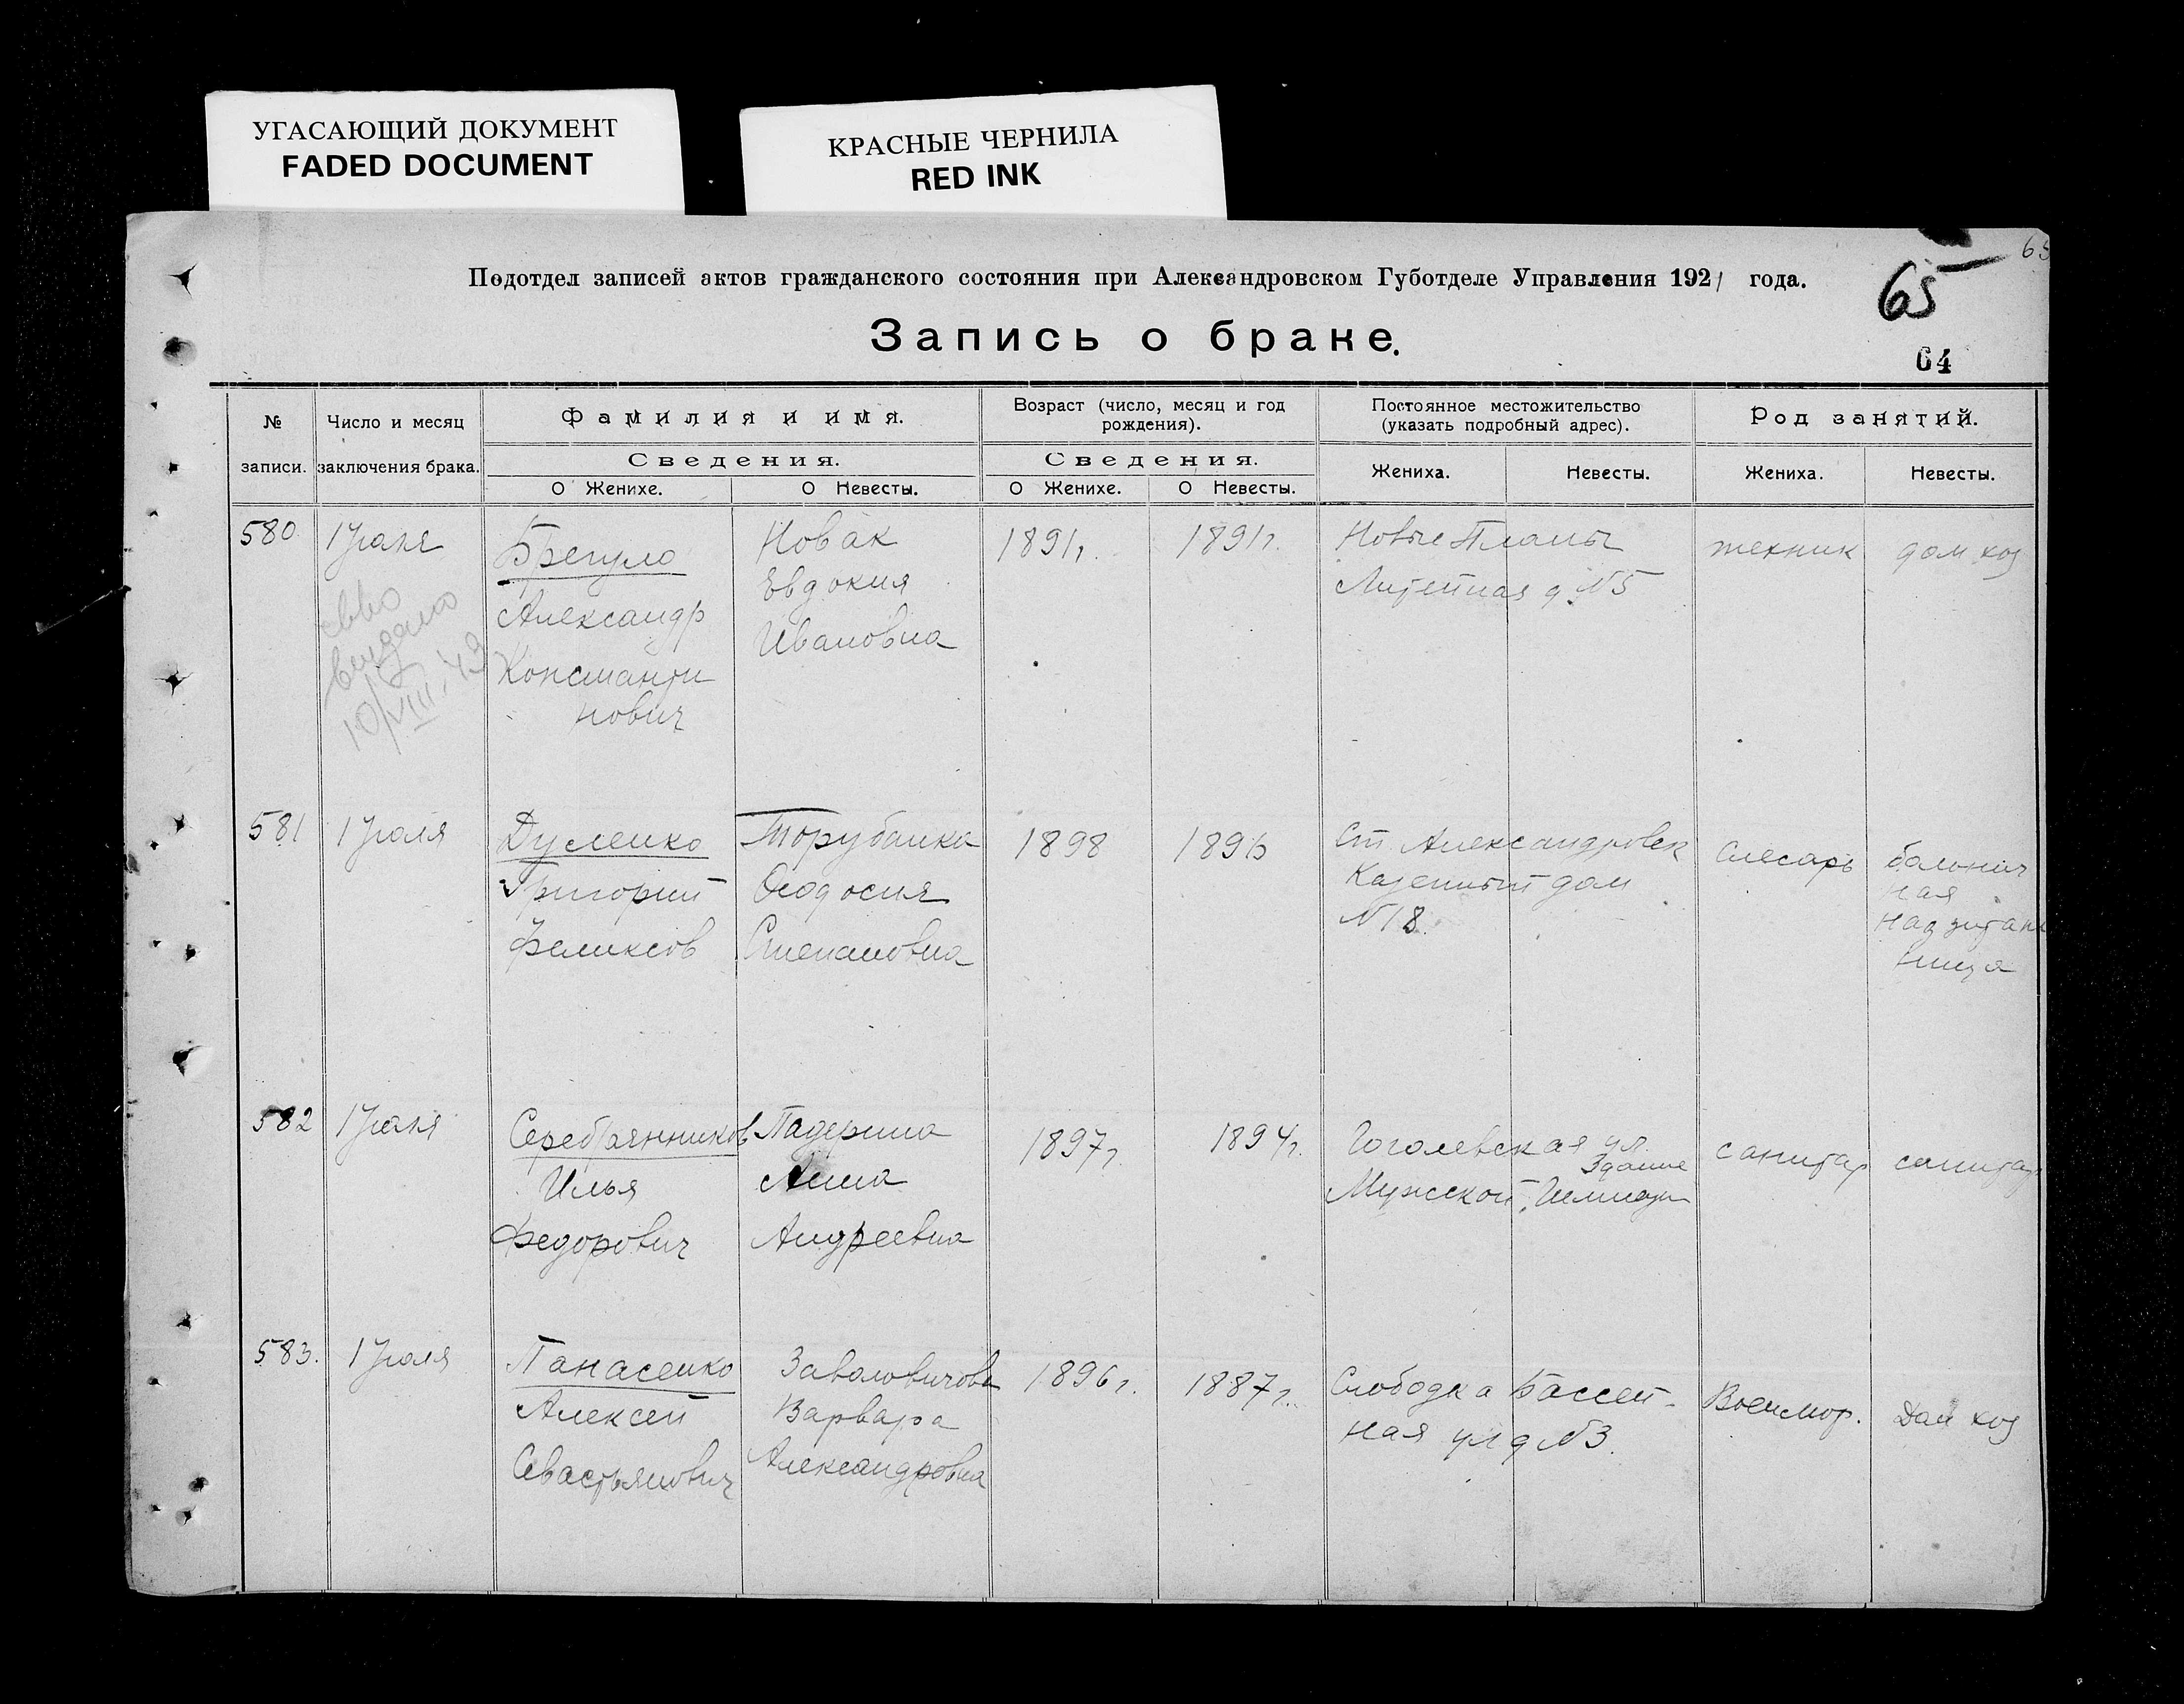 УГАСАЮЩИЙ ДОКУМЕНТ
FADED DOCUMENT
КРАСНЫЕ ЧЕРНИЛА
RED INK
63
65
Подотдел записей актов гражданского состояния при Александровском Губотделе Управления 1921 года.
Запись о браке.
64
№ записи.
Число и месяц заключения брака.
Фамилия и имя.
Сведения.
О Женихе.
О Невесты.
Возраст (число, месяц и год рождения).
Сведения.
О Женихе.
О Невесты.
Постоянное местожительство (указать подробный адрес).
Жениха.
Невесты.
Род занятий.
Жениха.
Невесты.
580
1 Июля
выдано
10/VIII. 43
Брегуло
Александр
Константи
нович
Новак
Евдокия
Ивановна
1891г.
1891г.
Новые Планы
Литейная д №5
техник
дом хоз
581
1 Июля
Дусенко
Григорий
Феликсов
Торубанка
Феодосия
Степановна
1898
1896
Ст Александровск
Казенный дом
№18.
Слесарь
ная
582
1 Июля
Серебрянников
Илья
Федорович
Падерина
Анна
Андреевна
1897г.
1894г.
Гоголевская ул.
Здание
Мужской Гимнази
санитар
санитар
583.
1 Июля
Панасенко
Алексей
Севастьянович
Варвара
Александровна
1896г.
1887г.
Слободка Бассей-
ная ул д №3.
Военмор.
Дом хоз